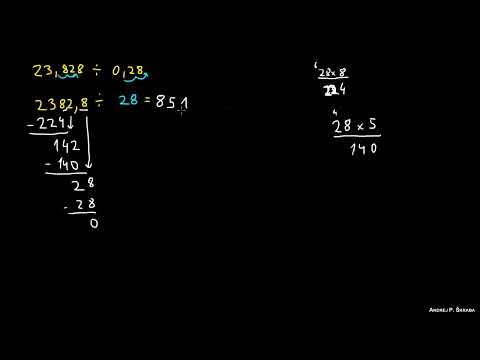 23,828 ÷ 0,28
2382,8 ÷ 28 = 851
- 224
142
- 140
28
- 28
0
6
28 x 8
224
4
28 x 5
140
ANDREJ P. ŠKRABA